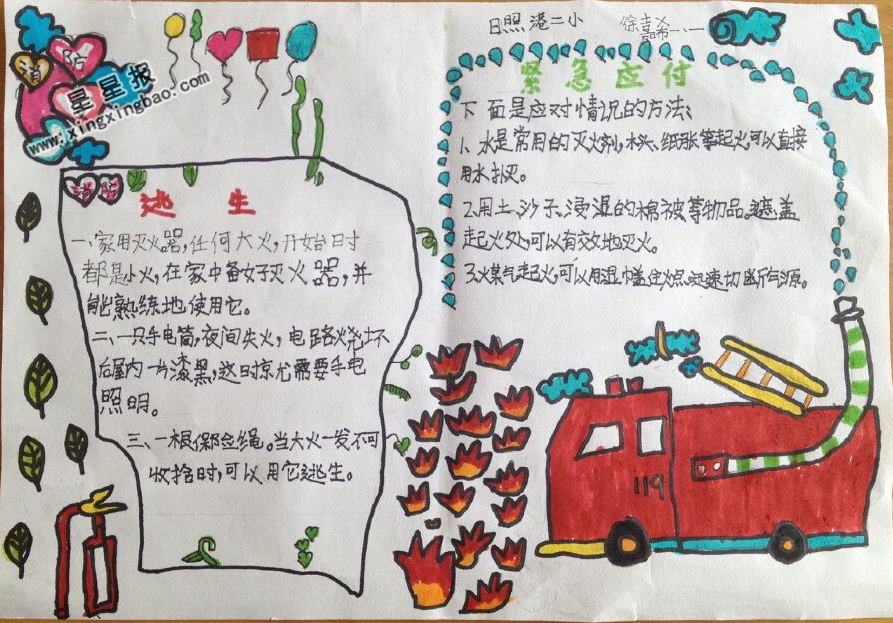 日照港二小 徐
消 防
星星报
www.xingxingbao.com
消 防
逃 生
一、家用灭火器,任何大火,开始时
都是小火,在家中备好灭火器,并
能熟练地使用它。
二、一只手电筒,夜间失火,电路烧坏
后屋内一片漆黑,这时尤需要手电
照明。
三、一根保险绳。当大火一发不可
收拾时,可以用它逃生。
紧急应付
下面是应对情况的方法:
1、水是常用的灭火剂,木头、纸张等起火,可以直接
用水扑灭。
2、用土、沙子、浸湿的棉被等物品。遮盖
起火处,可以有效地灭火。
3、煤气起火,可以用湿 盖住火 速切断气源。
119